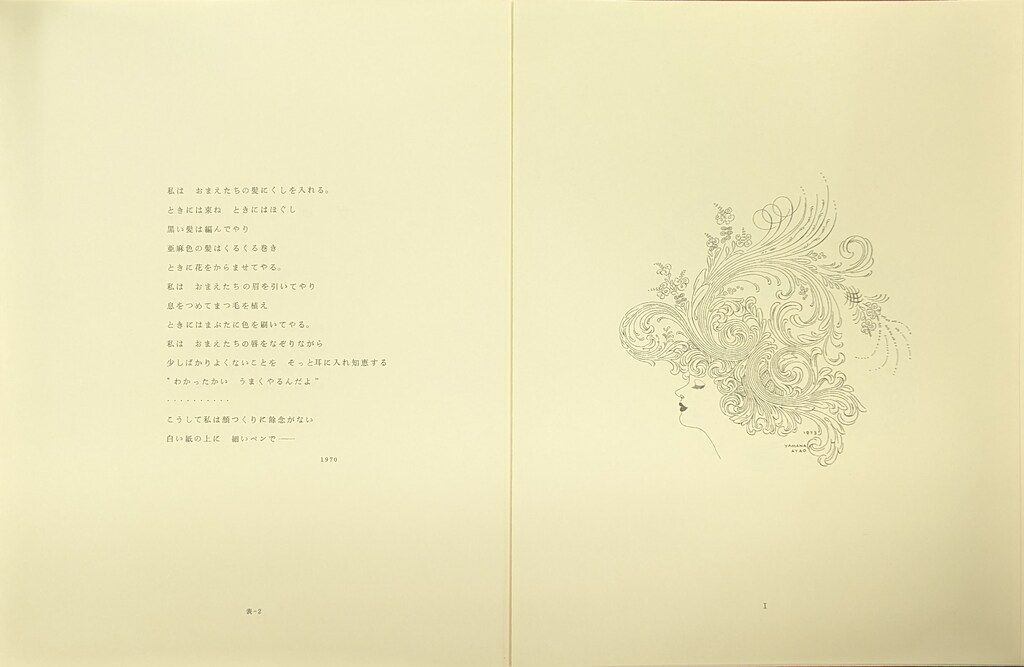 私は　おまえたちの髪にくしを入れる。
ときには束ね　ときにはほぐし
黒い髪は編んでやり
亜麻色の髪はくるくる巻き
ときに花をからませてやる。
私は　おまえたちの眉を引いてやり
息をつめてまつ毛を植え
ときにはまぶたに色を刷いてやる。
私は　おまえたちの唇をなぞりながら
少しばかりよくないことを　そっと耳に入れ知恵する
"わかったかい　うまくやるんだよ"
. . . . . . . . . .
こうして私は顔つくりに余念がない
白い紙の上に　細いペンで——
1970
表-2
1973
YAMANA
AYAO
I